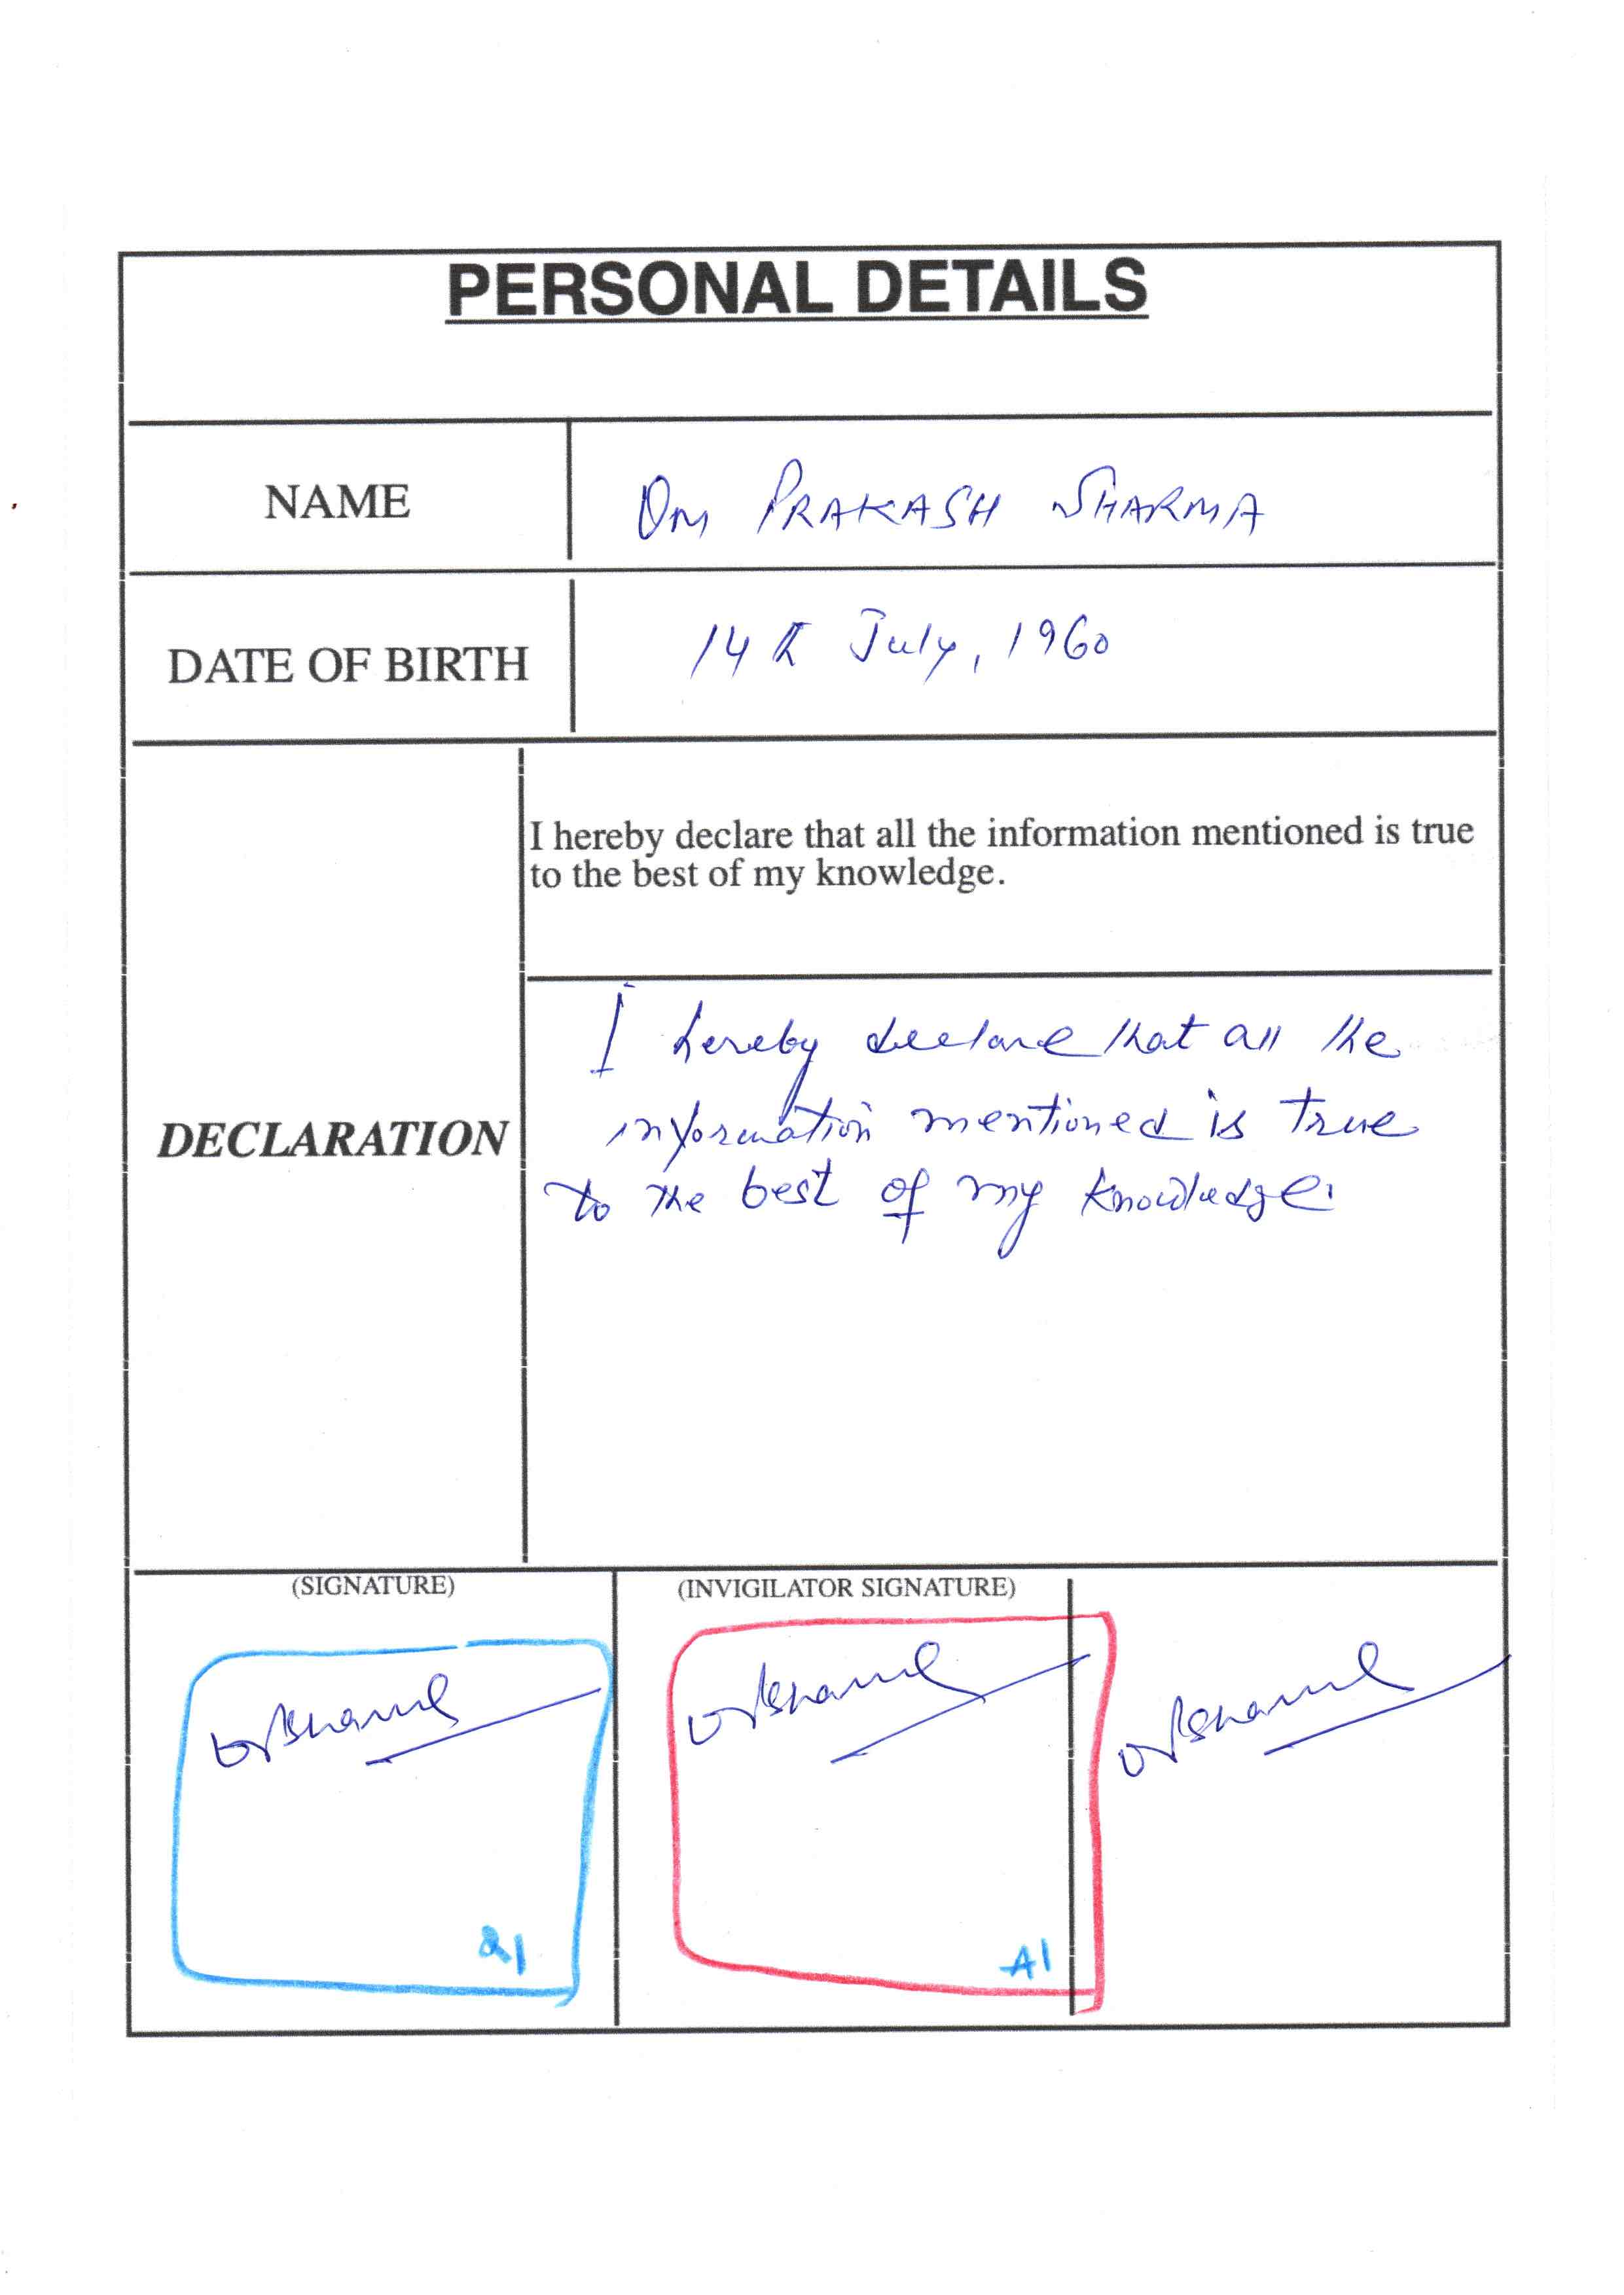 PERSONAL DETAILS
NAME
OM PRAKASH SHARMA
DATE OF BIRTH
14th July, 1960
I hereby declare that all the information mentioned is true
to the best of my knowledge.
DECLARATION
I hereby declare that all the
information mentioned is true
to the best of my knowledge.
(SIGNATURE)
(INVIGILATOR SIGNATURE)
A1